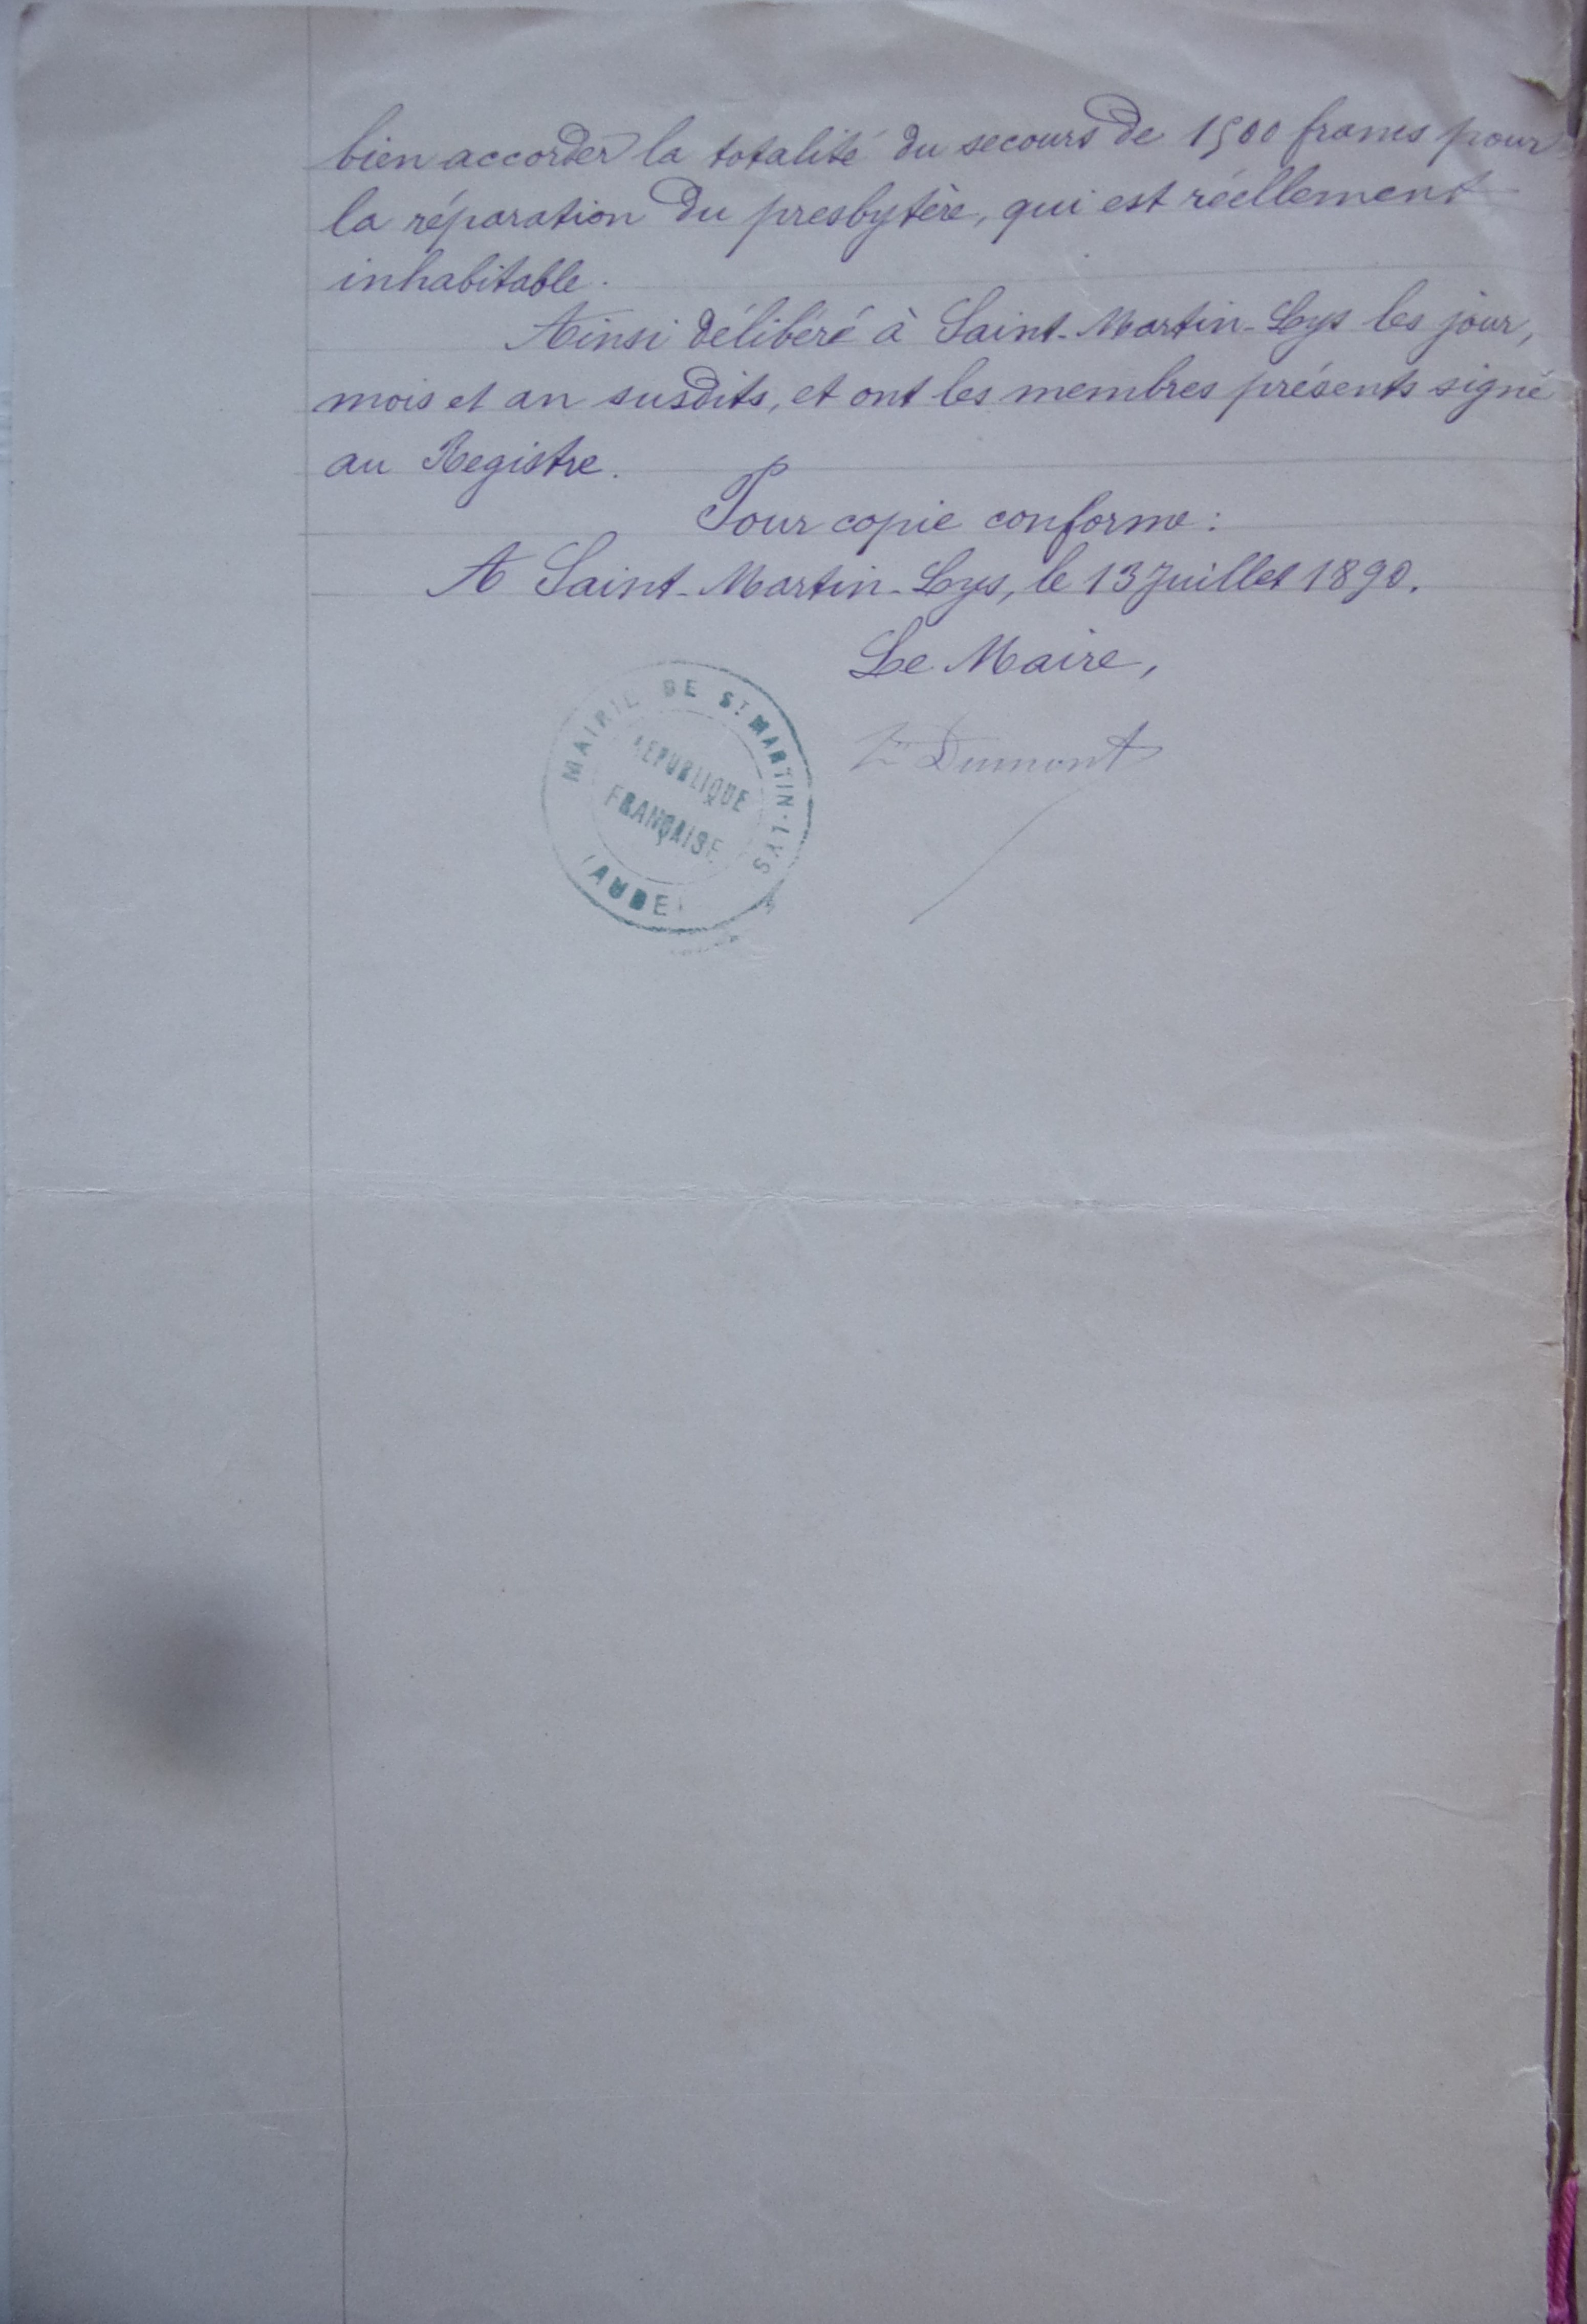 bien accorder la totalité du secours de 1500 francs pour
la réparation du presbytère, qui est réellement
inhabitable.
Ainsi délibéré à Saint-Martin-Lys les jour,
mois et an susdits, et ont les membres présents signé
au Registre.
Pour copie conforme :
A Saint-Martin-Lys, le 13 Juillet 1890.
Le Maire,
Dumont
MAIRIE DE ST MARTIN-LYS
RÉPUBLIQUE
FRANÇAISE
(AUDE)